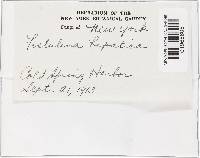 HERBARIUM OF THE
NEW YORK BOTANICAL GARDEN
New York
Fistulina hepatica
Cold Spring Harbor
Sept. 1913